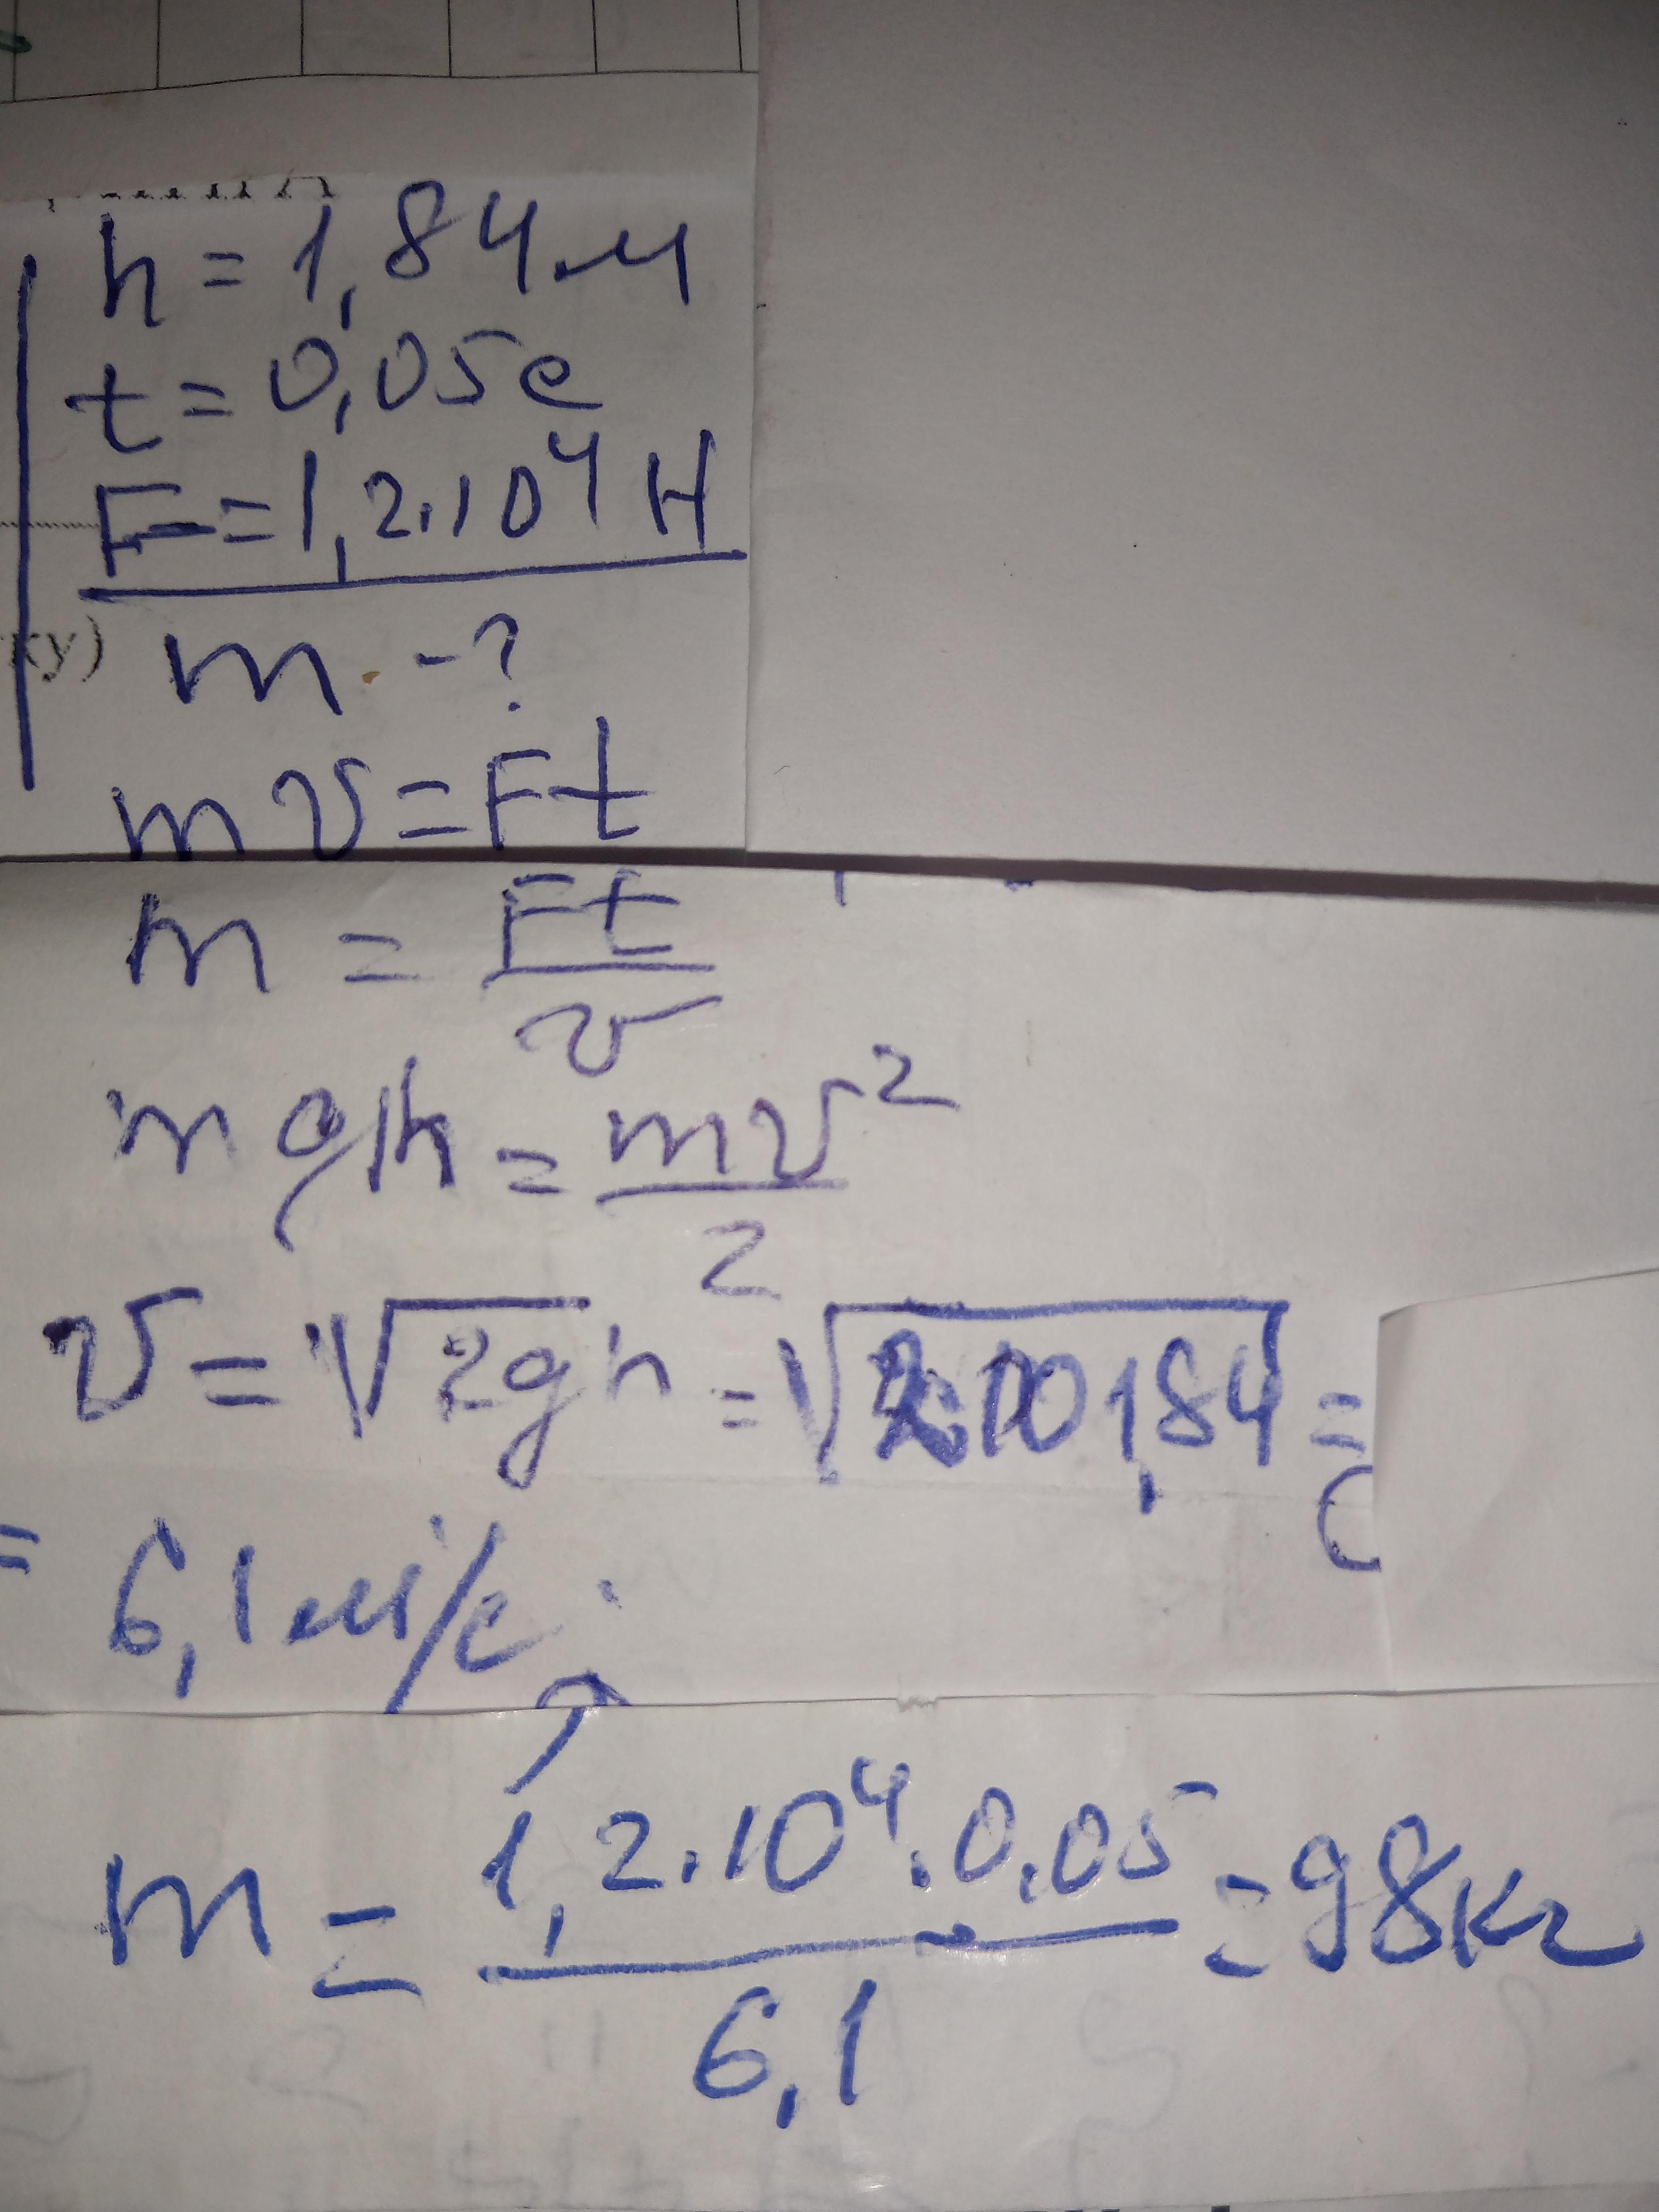 h = 1,84 м
t = 0,05 с
F = 1,2·10⁴ Н
ку)
m - ?
mv = Ft
m = Ft/v
mgh = mv²/2
v = √2gh = √2·10 1,84 =
= 6,1 м/с
m = 1,2·10⁴·0,05/6,1 = 98 кг